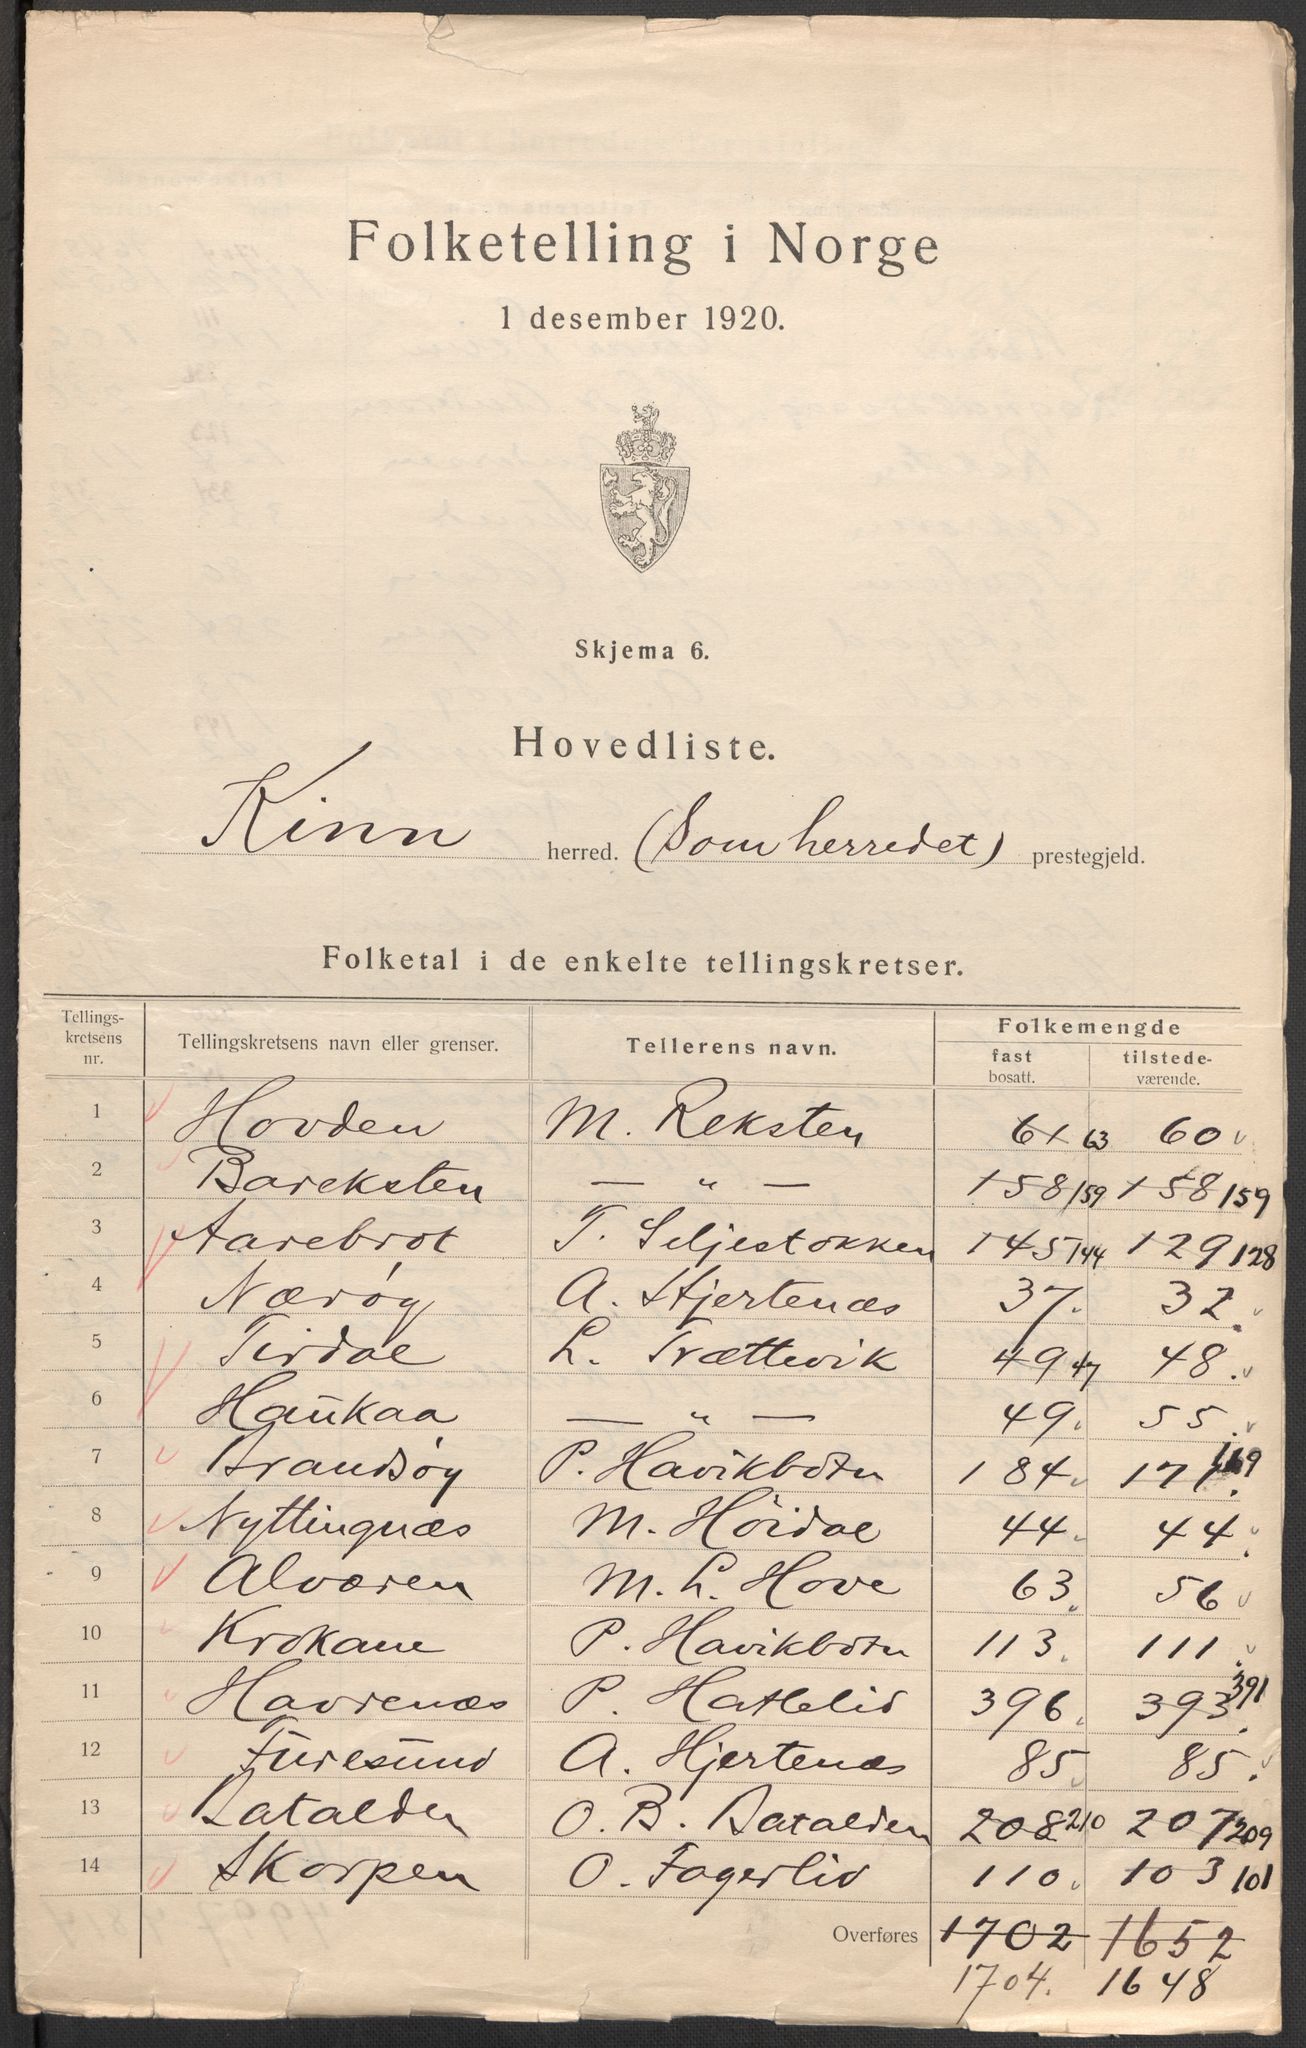 Folketelling i Norge
1 desember 1920.
Skjema 6.
Hovedliste.
Kinn herred. (Som herredet) prestegjeld.
Folketal i de enkelte tellingskretser.
Tellings-
kretsens
nr.
Tellingskretsens navn eller grenser.
Tellerens navn.
Folkemengde
fast
bosatt.
tilstede-
værende.
1 Hovden M. Reksten 61 63 60
2 Bareksten — „ — 158 159 158 159
3 Aarebrot T. Seljestokken 145 144 129 128
4 Nærøy A. Hjertenæs 37. 32.
5 Tirdal L. Trættevik 49 47 48.
6 Haukaa — „ — 49. 55.
7 Brandsøy P. Havikbotn 184. 171 169
8 Nyttingnæs M. Høidal 44. 44.
9 Alværen M. L. Hove 63. 56
10 Krokane P. Havikbotn 113. 111.
11 Havrenæs P. Hatlelid 396. 393. 391
12 Furesund A. Hjertenæs 85. 85.
13 Batalden O. B. Batalden 208 210 207 209
14 Skorpen O. Fagerlid 110. 103 101
Overføres 1702 1652
1704. 1648